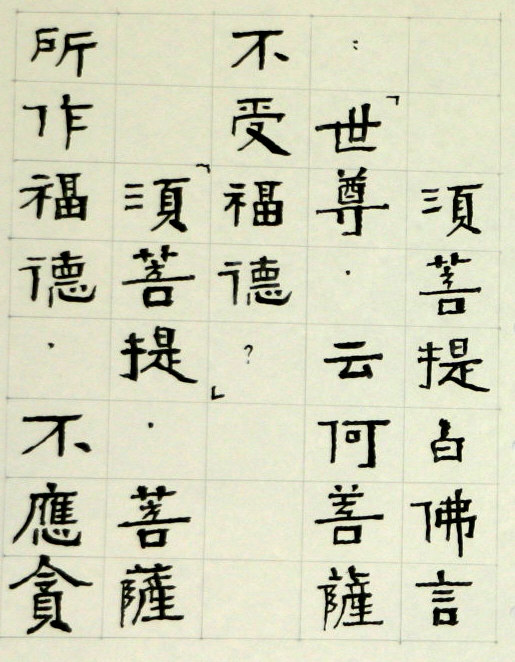 須菩提白佛言
：「世尊．云何菩薩
不受福德？」
「須菩提．菩薩
所作福德．不應貪